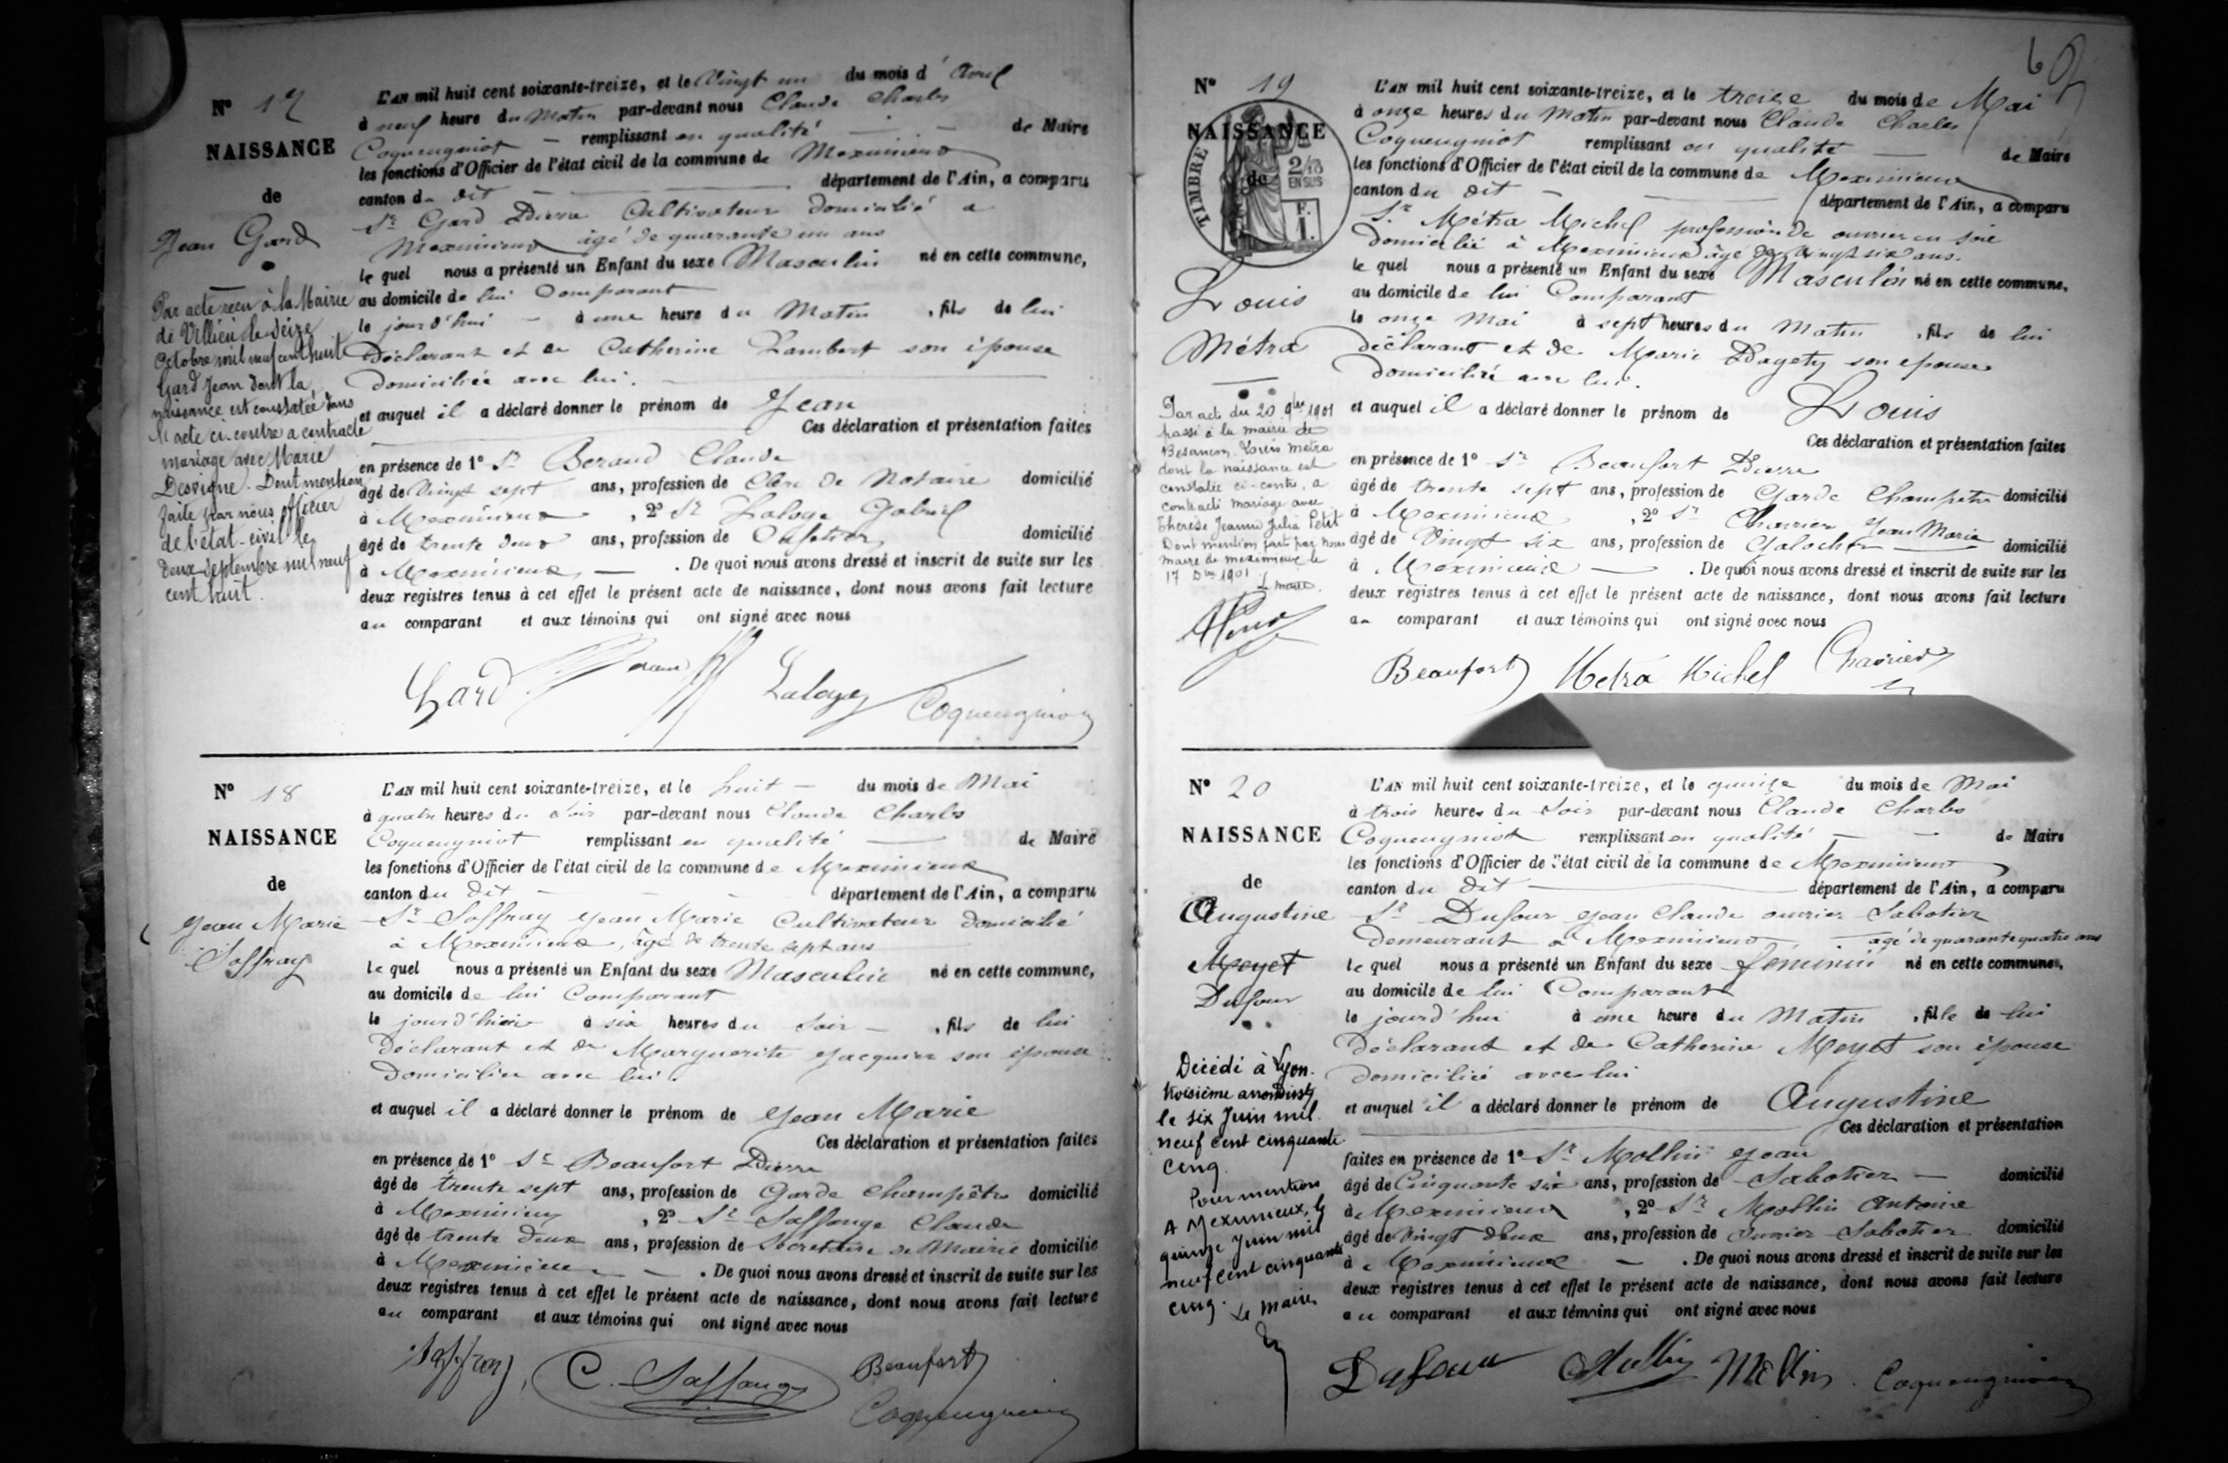 N° 17
NAISSANCE
de
Jean Gard
Par acte reçu à la Mairie
de Villieu le seize
Octobre mil neuf cent huit
Gard Jean dont la
naissance est constatée dans
l'acte ci-contre a contracté
mariage avec Marie
Desvigne. Dont mention
faite par nous officier
de l'état-civil le
deux septembre mil neuf
cent huit.
L'AN mil huit cent soixante-treize, et le Vingt un du mois d'Avril
à neuf heure du Matin par-devant nous Claude Charles
Coqueugniot remplissant en qualité de Maire
les fonctions d'Officier de l'état civil de la commune de Meximieux
canton du dit département de l'Ain, a comparu
Sr Gard Pierre Cultivateur domicilié à
Meximieux âgé de quarante un ans
le quel nous a présenté un Enfant du sexe Masculin né en cette commune,
au domicile de lui Comparant
le jour d'hui à une heure du Matin, fils de lui
Déclarant et de Catherine Lambert son épouse
domiciliée avec lui.
et auquel il a déclaré donner le prénom de Jean
Ces déclaration et présentation faites
en présence de 1° Sr Beraud Claude
âgé de Vingt sept ans, profession de Clerc de Notaire domicilié
à Meximieux, 2° Sr Laloge Gabriel
âgé de trente deux ans, profession de Cafetier domicilié
à Meximieux. De quoi nous avons dressé et inscrit de suite sur les
deux registres tenus à cet effet le présent acte de naissance, dont nous avons fait lecture
au comparant et aux témoins qui ont signé avec nous
Gard Beraud Laloge Coqueugniot
N° 18
NAISSANCE
de
Jean Marie
Soffray
L'AN mil huit cent soixante-treize, et le huit du mois de Mai
à quatre heures du soir par-devant nous Claude Charles
Coqueugniot remplissant en qualité de Maire
les fonctions d'Officier de l'état civil de la commune de Meximieux
canton du dit département de l'Ain, a comparu
Sr Soffray Jean Marie Cultivateur domicilié
à Meximieux, âgé de trente sept ans
le quel nous a présenté un Enfant du sexe Masculin né en cette commune,
au domicile de lui Comparant
le jour d'hier à six heures du soir, fils de lui
Déclarant et de Marguerite Jacquier son épouse
Domiciliée avec lui.
et auquel il a déclaré donner le prénom de Jean Marie
Ces déclaration et présentation faites
en présence de 1° Sr Beaufort Pierre
âgé de trente sept ans, profession de Garde Champêtre domicilié
à Meximieux, 2° Sr Saffange Claude
âgé de trente deux ans, profession de Secrétaire de Mairie domicilié
à Meximieux. De quoi nous avons dressé et inscrit de suite sur les
deux registres tenus à cet effet le présent acte de naissance, dont nous avons fait lecture
au comparant et aux témoins qui ont signé avec nous
Soffray C. Saffange Beaufort
Coqueugniot
N° 19
NAISSANCE
de
TIMBRE
2/10
EN SUS
F.
1.
Louis
Métra
Par acte du 20 9bre 1901
passé à la mairie de
Besançon, Louis Métra
dont la naissance est
constatée ci-contre, a
contracté mariage avec
Thérèse Jeanne Julia Petit
Dont mention fait par nous
maire de Meximieux le
17 Xbre 1901
L maire.
L'AN mil huit cent soixante-treize, et le treize du mois de Mai
à onze heures du Matin par-devant nous Claude Charles
Coqueugniot remplissant en qualité de Maire
les fonctions d'Officier de l'état civil de la commune de Meximieux
canton du dit département de l'Ain, a comparu
Sr Métra Michel profession de ouvrier en soie
domicilié à Meximieux âgé de Vingt six ans.
le quel nous a présenté un Enfant du sexe Masculin né en cette commune,
au domicile de lui Comparant
le onze Mai à sept heures du Matin, fils de lui
déclarant et de Marie Pagety son épouse
domiciliée avec lui.
et auquel il a déclaré donner le prénom de Louis
Ces déclaration et présentation faites
en présence de 1° Sr Beaufort Pierre
âgé de trente sept ans, profession de Garde Champetre domicilié
à Meximieux, 2° Sr Charrier Jean Marie
âgé de Vingt six ans, profession de Galocher domicilié
à Meximieux. De quoi nous avons dressé et inscrit de suite sur les
deux registres tenus à cet effet le présent acte de naissance, dont nous avons fait lecture
au comparant et aux témoins qui ont signé avec nous
Beaufort Metra Michel Charrier
N° 20
NAISSANCE
de
Augustine
Meyet
Dufour
Décédé à Lyon.
troisième arrondisst
le six Juin mil
neuf cent cinquante
cinq.
Pour mention
A Meximieux, le
quinze Juin mil
neuf cent cinquante
cinq.
Le Maire
L'AN mil huit cent soixante-treize, et le quinze du mois de Mai
à trois heures du Soir par-devant nous Claude Charles
Coqueugniot remplissant en qualité de Maire
les fonctions d'Officier de l'état civil de la commune de Meximieux
canton du dit département de l'Ain, a comparu
Sr Dufour Jean Claude ouvrier Sabotier
demeurant à Meximieux âgé de quarante quatre ans
le quel nous a présenté un Enfant du sexe féminin né en cette commune,
au domicile de lui Comparant
le jour d'hui à une heure du Matin, fille de lui
Déclarant et de Catherine Meyet son épouse
domiciliée avec lui
et auquel il a déclaré donner le prénom de Augustine
Ces déclaration et présentation
faites en présence de 1° Sr Mollin Jean
âgé de Cinquante six ans, profession de Sabotier domicilié
à Meximieux, 2° Sr Mollin Antoine
âgé de Vingt deux ans, profession de Ouvrier Sabotier domicilié
à Meximieux. De quoi nous avons dressé et inscrit de suite sur les
deux registres tenus à cet effet le présent acte de naissance, dont nous avons fait lecture
au comparant et aux témoins qui ont signé avec nous
Dufour Mollin Mollin Coqueugniot